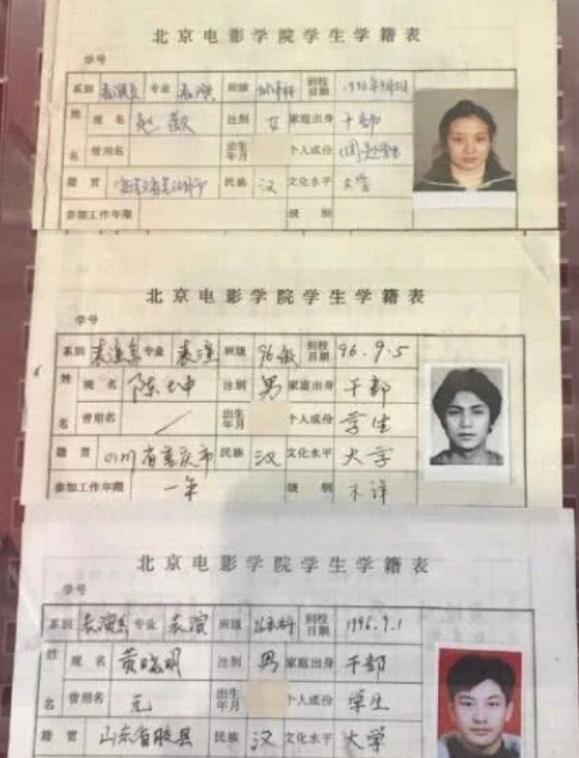 北京电影学院学生学籍表
学号
系别 表演系 专业 表演 班级 96本科 到校日期 1996年9月
姓名 现名 赵薇 性别 女 家庭出身 干部
曾用名 出生年月 个人成份
籍贯 安徽省芜湖市 民族 汉 文化水平 大学
参加工作年限 级别
北京电影学院学生学籍表
学号
系别 表演系 专业 表演 班级 96级 到校日期 96.9.5
姓名 现名 陈坤 性别 男 家庭出身 干部
曾用名 / 出生年月 个人成份 学生
籍贯 四川省重庆市 民族 汉 文化水平 大学
参加工作年限 一年 级别 不详
北京电影学院学生学籍表
学号
系别 表演系 专业 表演 班级 96本科 到校日期 1996.9.1
姓名 现名 黄晓明 性别 男 家庭出身 干部
曾用名 无 出生年月 个人成份 学生
籍贯 山东省胶县 民族 汉 文化水平 大学